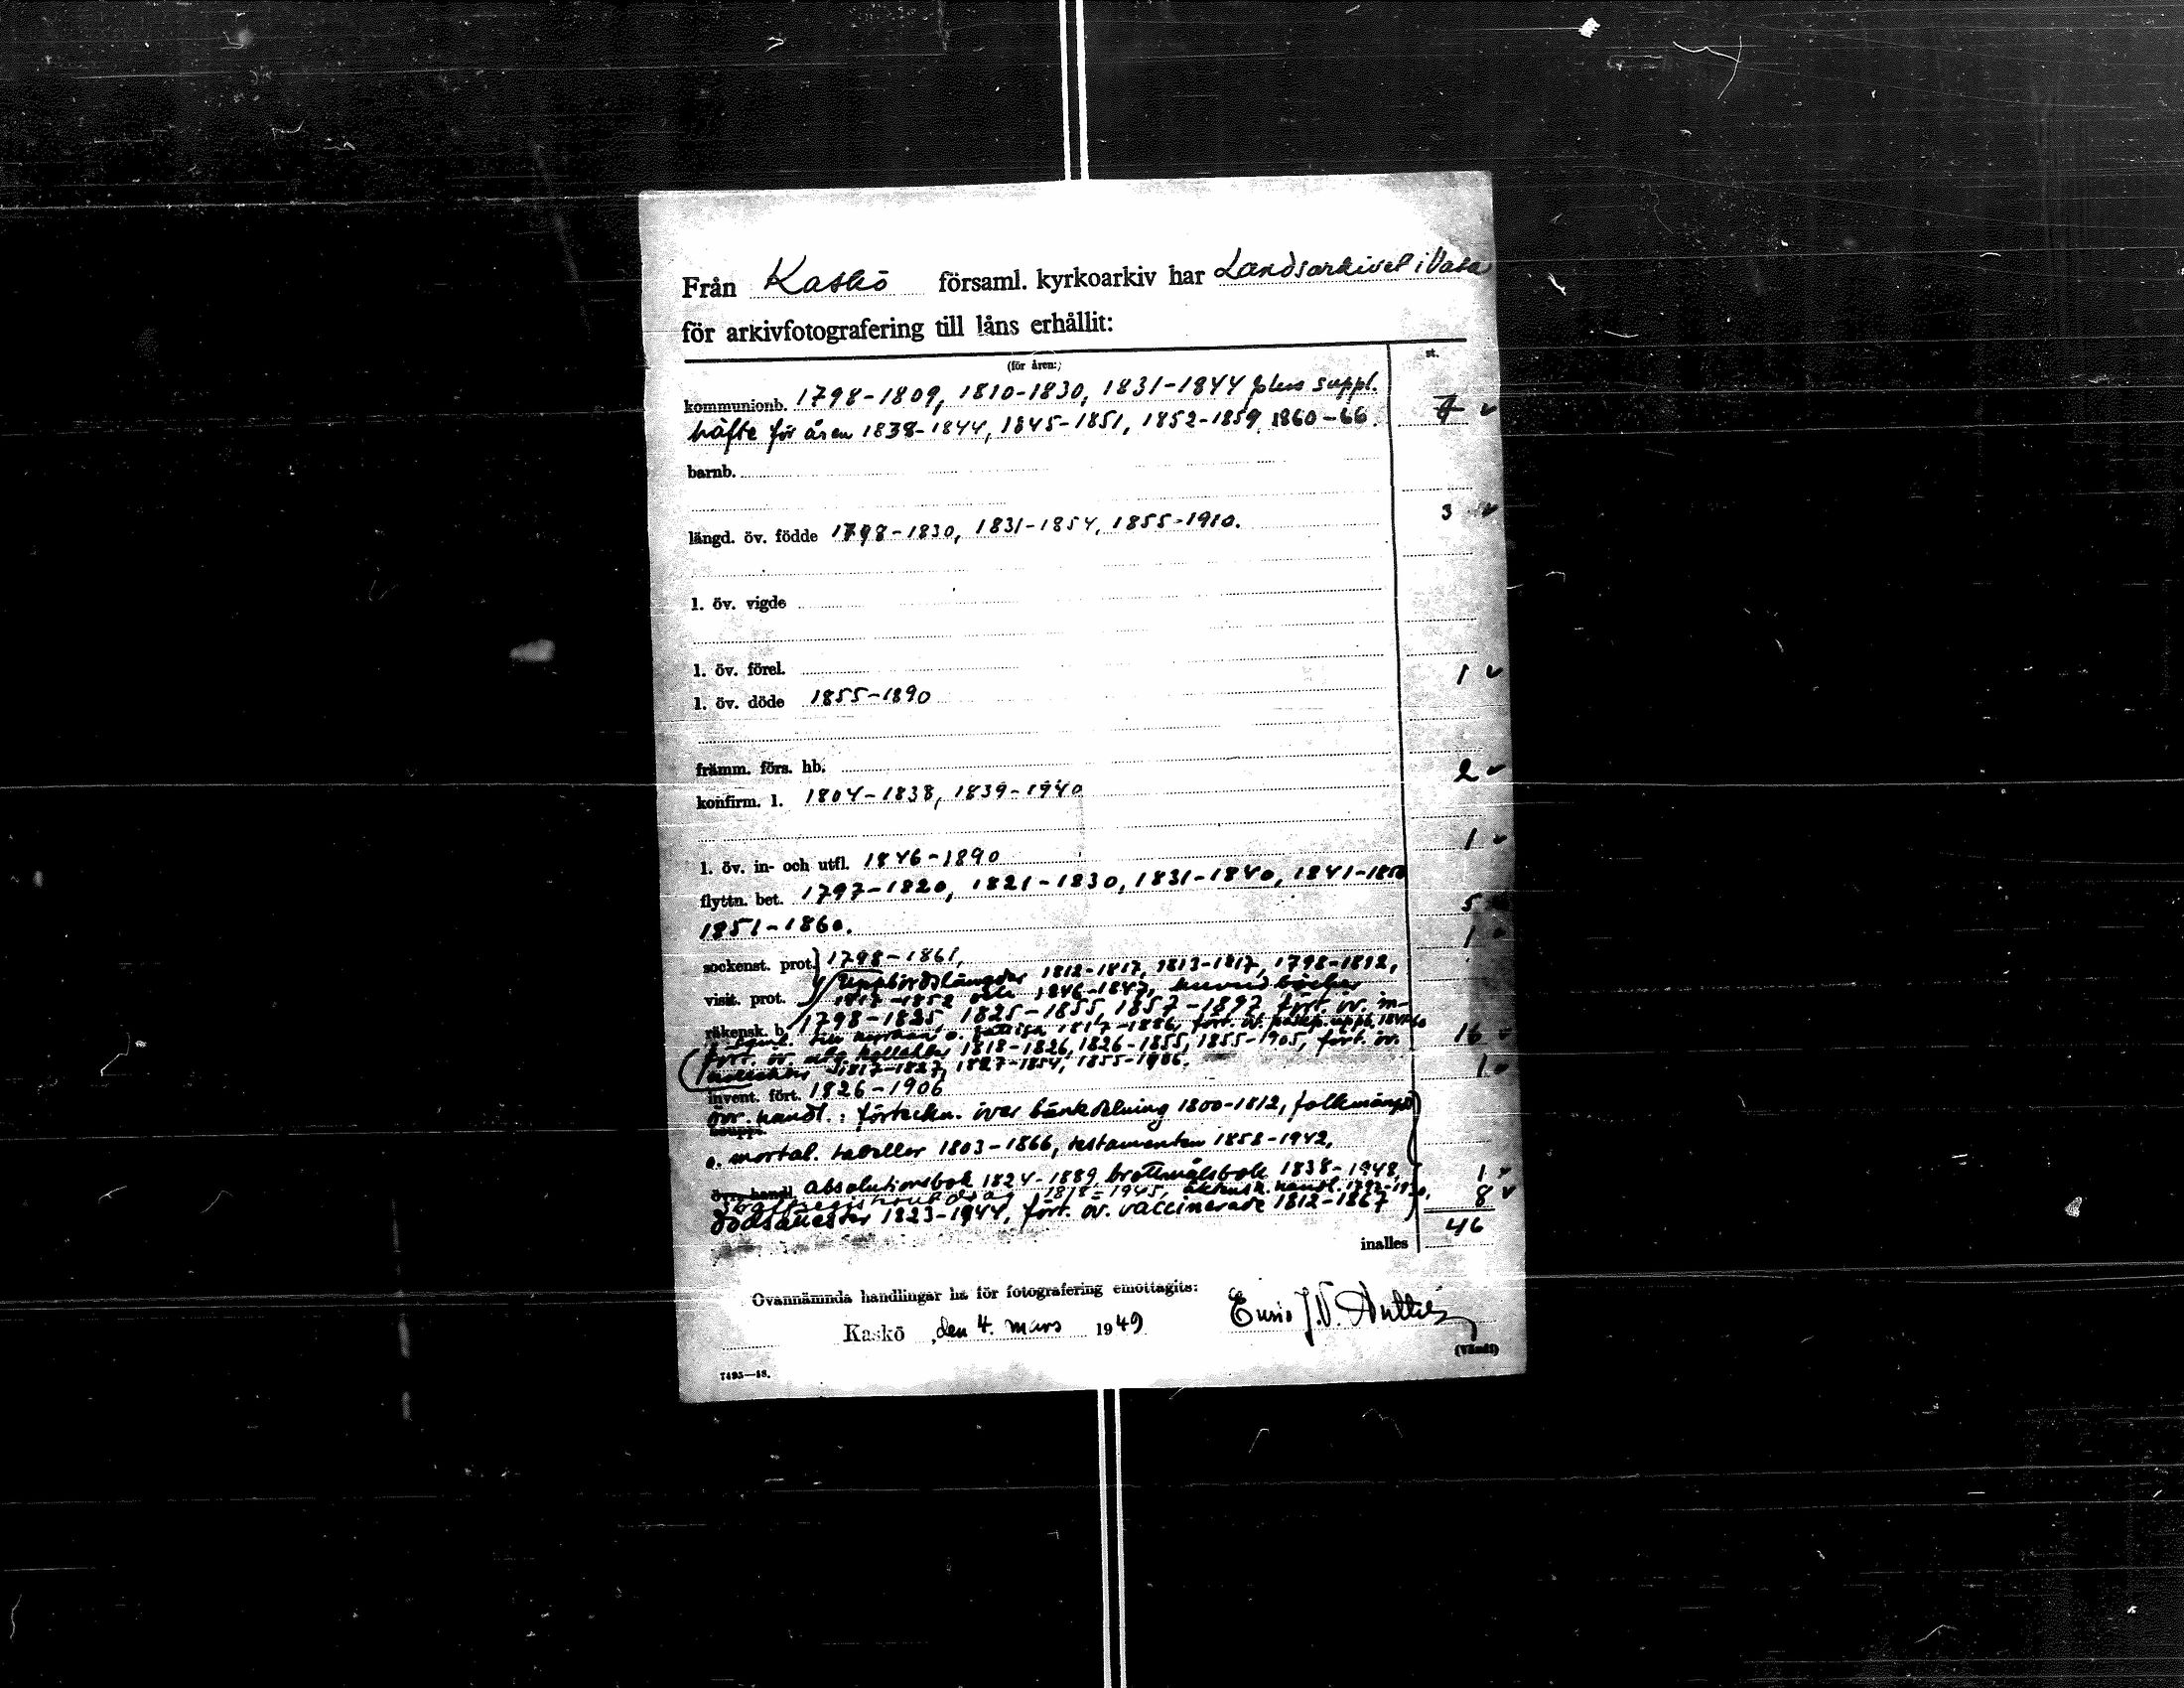 Från Kaskö församl. kyrkoarkiv har Landsarkivet i Vasa
för arkivfotografering till låns erhållit:
(för åren:) st.
kommunionb. 1798-1809, 1810-1830, 1831-1844 plus suppl.
häfte för åren 1838-1844, 1845-1851, 1852-1859, 1860-66. 7
barnb.
längd. öv. födde 1798-1830, 1831-1854, 1855-1910. 3
l. öv. vigde
l. öv. förel.
l. öv. döde 1855-1890 1
främm. förs. hb.
konfirm. l. 1804-1838, 1839-1940 2
l. öv. in- och utfl. 1846-1890 1
flyttn. bet. 1797-1820, 1821-1830, 1831-1840, 1841-1850
1851-1860. 5
sockenst. prot. 1798-1861, 1
Uppbördslängder 1812-1817, 1813-1817, 1798-1812,
visit. prot. 1817-1852 och 1846-1847,
räkensk. b. 1798-1825, 1825-1855, 1857-1892 fört. öv. in-
till kyrkan o. 1817-1886, fört. öv.
fört. öv. kollekter 1818-1826, 1826-1855, 1855-1905, fört. öv. 16
1817-1827, 1827-1854, 1855-1906.
invent. fört. 1826-1906 1
övr. handl.: förteckn. över bänkdelning 1800-1812, folkmängd
o. mortal. tabeller 1803-1866, testamenten 1858-1942,
övr. handl. absolutionsbok 1824-1889, brottmålsbok 1838-1948, 1
1818-1945, handl. 8
dödsattester 1823-1944, fört. öv. vaccinerade 1812-1867
46
inalles
Ovannämnda handlingar ha för fotografering emottagits:
Kaskö, den 4. mars 1949
(Vänd!)
7495—48.